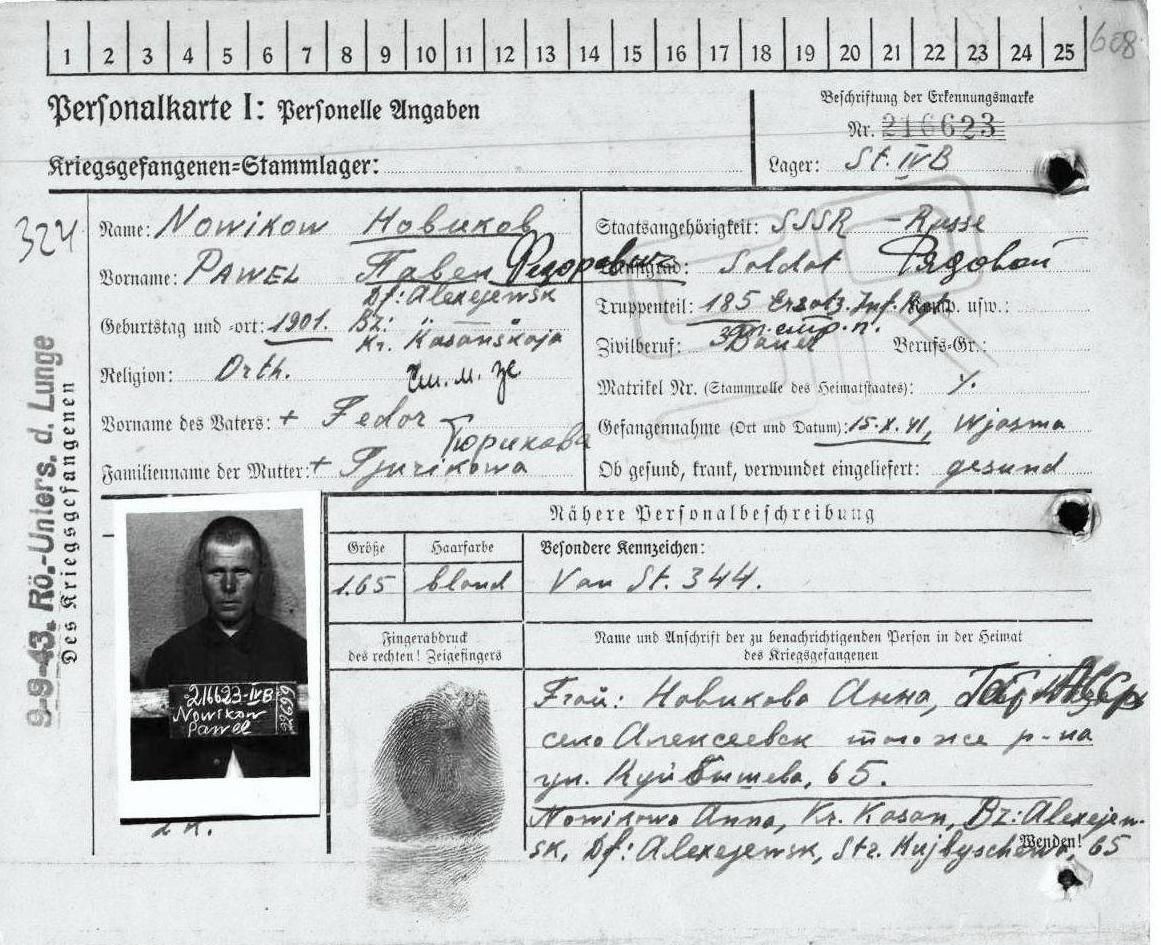 1 2 3 4 5 6 7 8 9 10 11 12 13 14 15 16 17 18 19 20 21 22 23 24 25
608
Personalkarte I: Personelle Angaben
Beschriftung der Erkennungsmarke
Nr. 216623
Kriegsgefangenen=Stammlager:
Lager: St. IV B
324
Name: Nowikow Новиков
Vorname: PAWEL Павел Федорович
Df: Alexejewsk
Geburtstag und -ort: 1901. Bz:
Kr. Kasanskaja
Religion: Orth.
Vorname des Vaters: + Fedor
Тюрикова
Familienname der Mutter: + Tjurikowa
Staatsangehörigkeit: SSSR - Russe
Dienstgrad: Soldat Рядовой
Truppenteil: 185 Ersatz. Inf. Rgt. Komp. usw.:
Zivilberuf: Bauer Berufs-Gr.:
Matrikel Nr. (Stammrolle des Heimatstaates): %.
Gefangennahme (Ort und Datum): 15.X.41, Wjasma
Ob gesund, krank, verwundet eingeliefert: gesund
9-9-43. Rö.-Unters. d. Lunge
Des Kriegsgefangenen
216623-IVB
Nowikow
Pawel
Nähere Personalbeschreibung
Größe Haarfarbe Besondere Kennzeichen:
1.65 blond Von St. 344.
Fingerabdruck
des rechten! Zeigefingers
Name und Anschrift der zu benachrichtigenden Person in der Heimat
des Kriegsgefangenen
Frau: Новикова Анна,
село Алексеевск того же р-на
ул. Куйбышева, 65.
Nowikowa Anna, Kr. Kasan, Bz: Alexejew-
sk, Df: Alexejewsk, Str. Kujbyschewa, 65
Wenden!